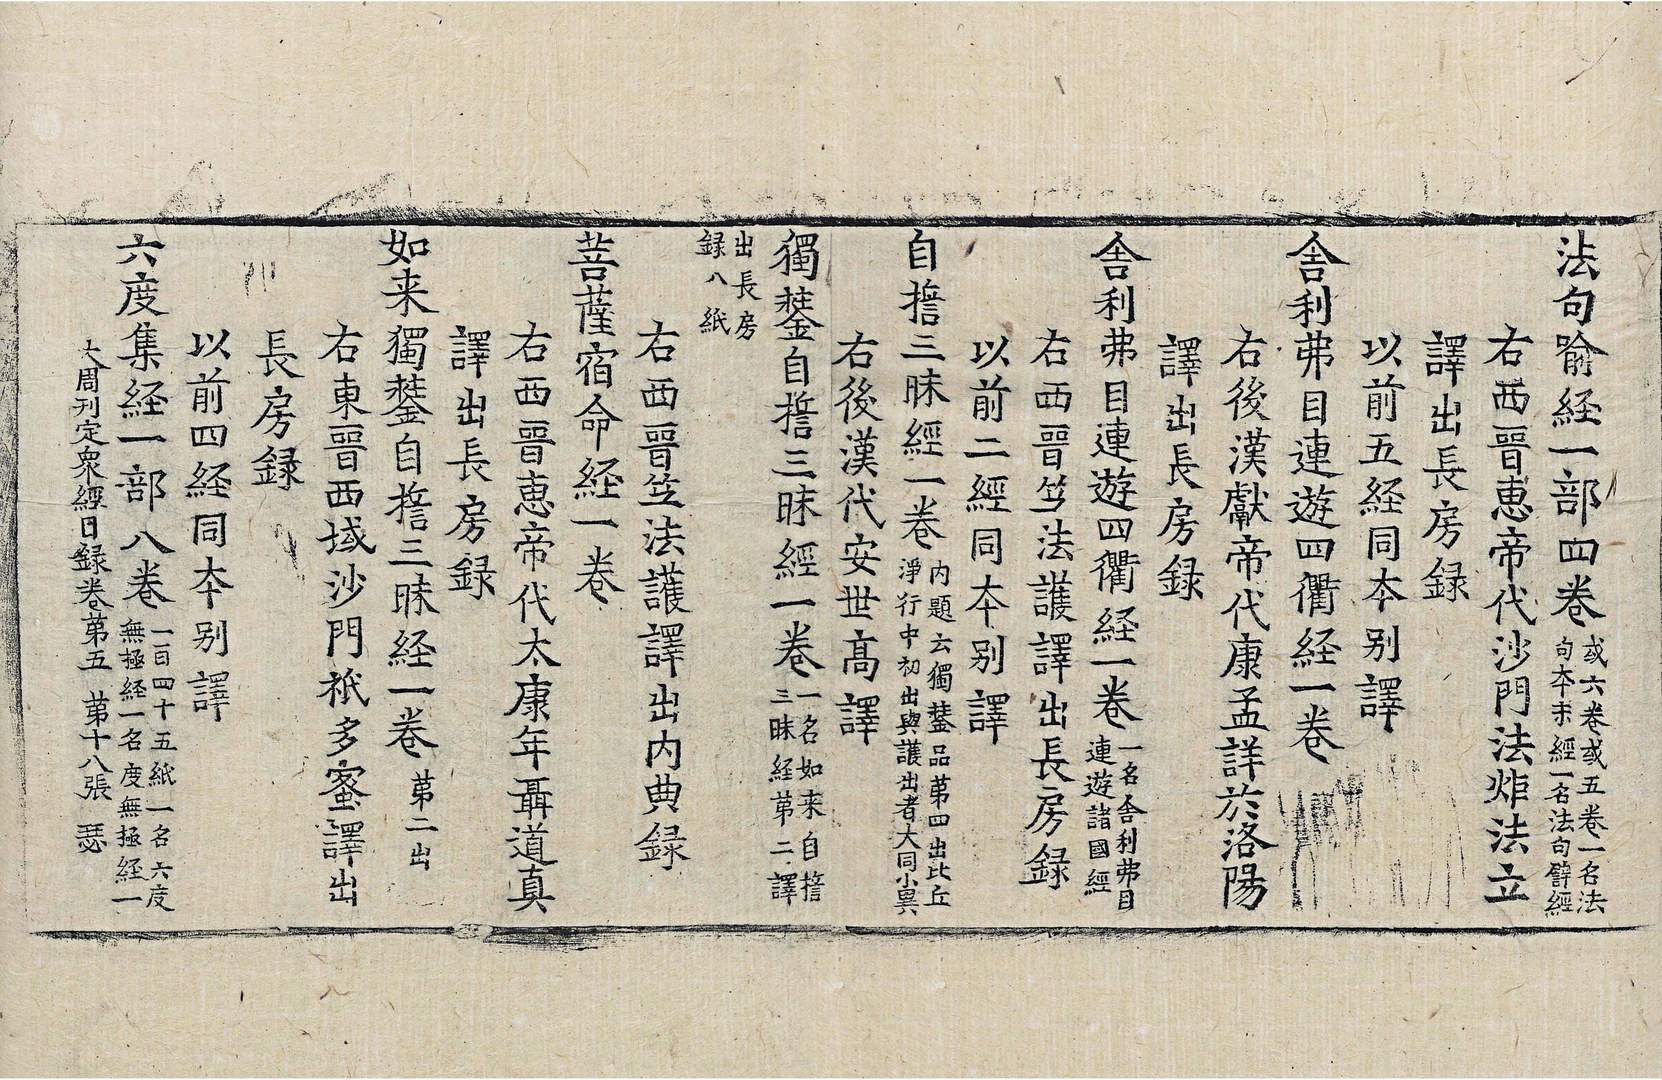 法句喩経一部四卷或六卷或五卷一名法
句本末經一名法句譬經
右西晉惠帝代沙門法炬法立
譯出長房録
以前五経同本别譯
舍利弗目連遊四衢経一卷
右後漢獻帝代康孟詳於洛陽
譯出長房録
舍利弗目連遊四衢経一卷一名舍利弗目
連遊諸國經
右西晉竺法護譯出長房録
以前二經同本别譯
自擔三昧經一卷内題云獨鏊品第四出比丘
淨行中初出與護出者大同小異
右後漢代安世髙譯
獨鏊自誓三昧經一卷一名如来自擔
三昧経第二譯
出長房
録八紙
右西晉竺法護譯出内典録
菩薩宿命経一卷
右西晉惠帝代太康年聶道真
譯出長房録
如来獨鏊自擔三昧経一卷第二出
右東晉西域沙門祇多蜜譯出
長房録
以前四経同本别譯
六度集経一部八卷一百四十五紙一名六度
無極経一名度無極経一
大周刊定衆經目録卷第五 第十八張 瑟